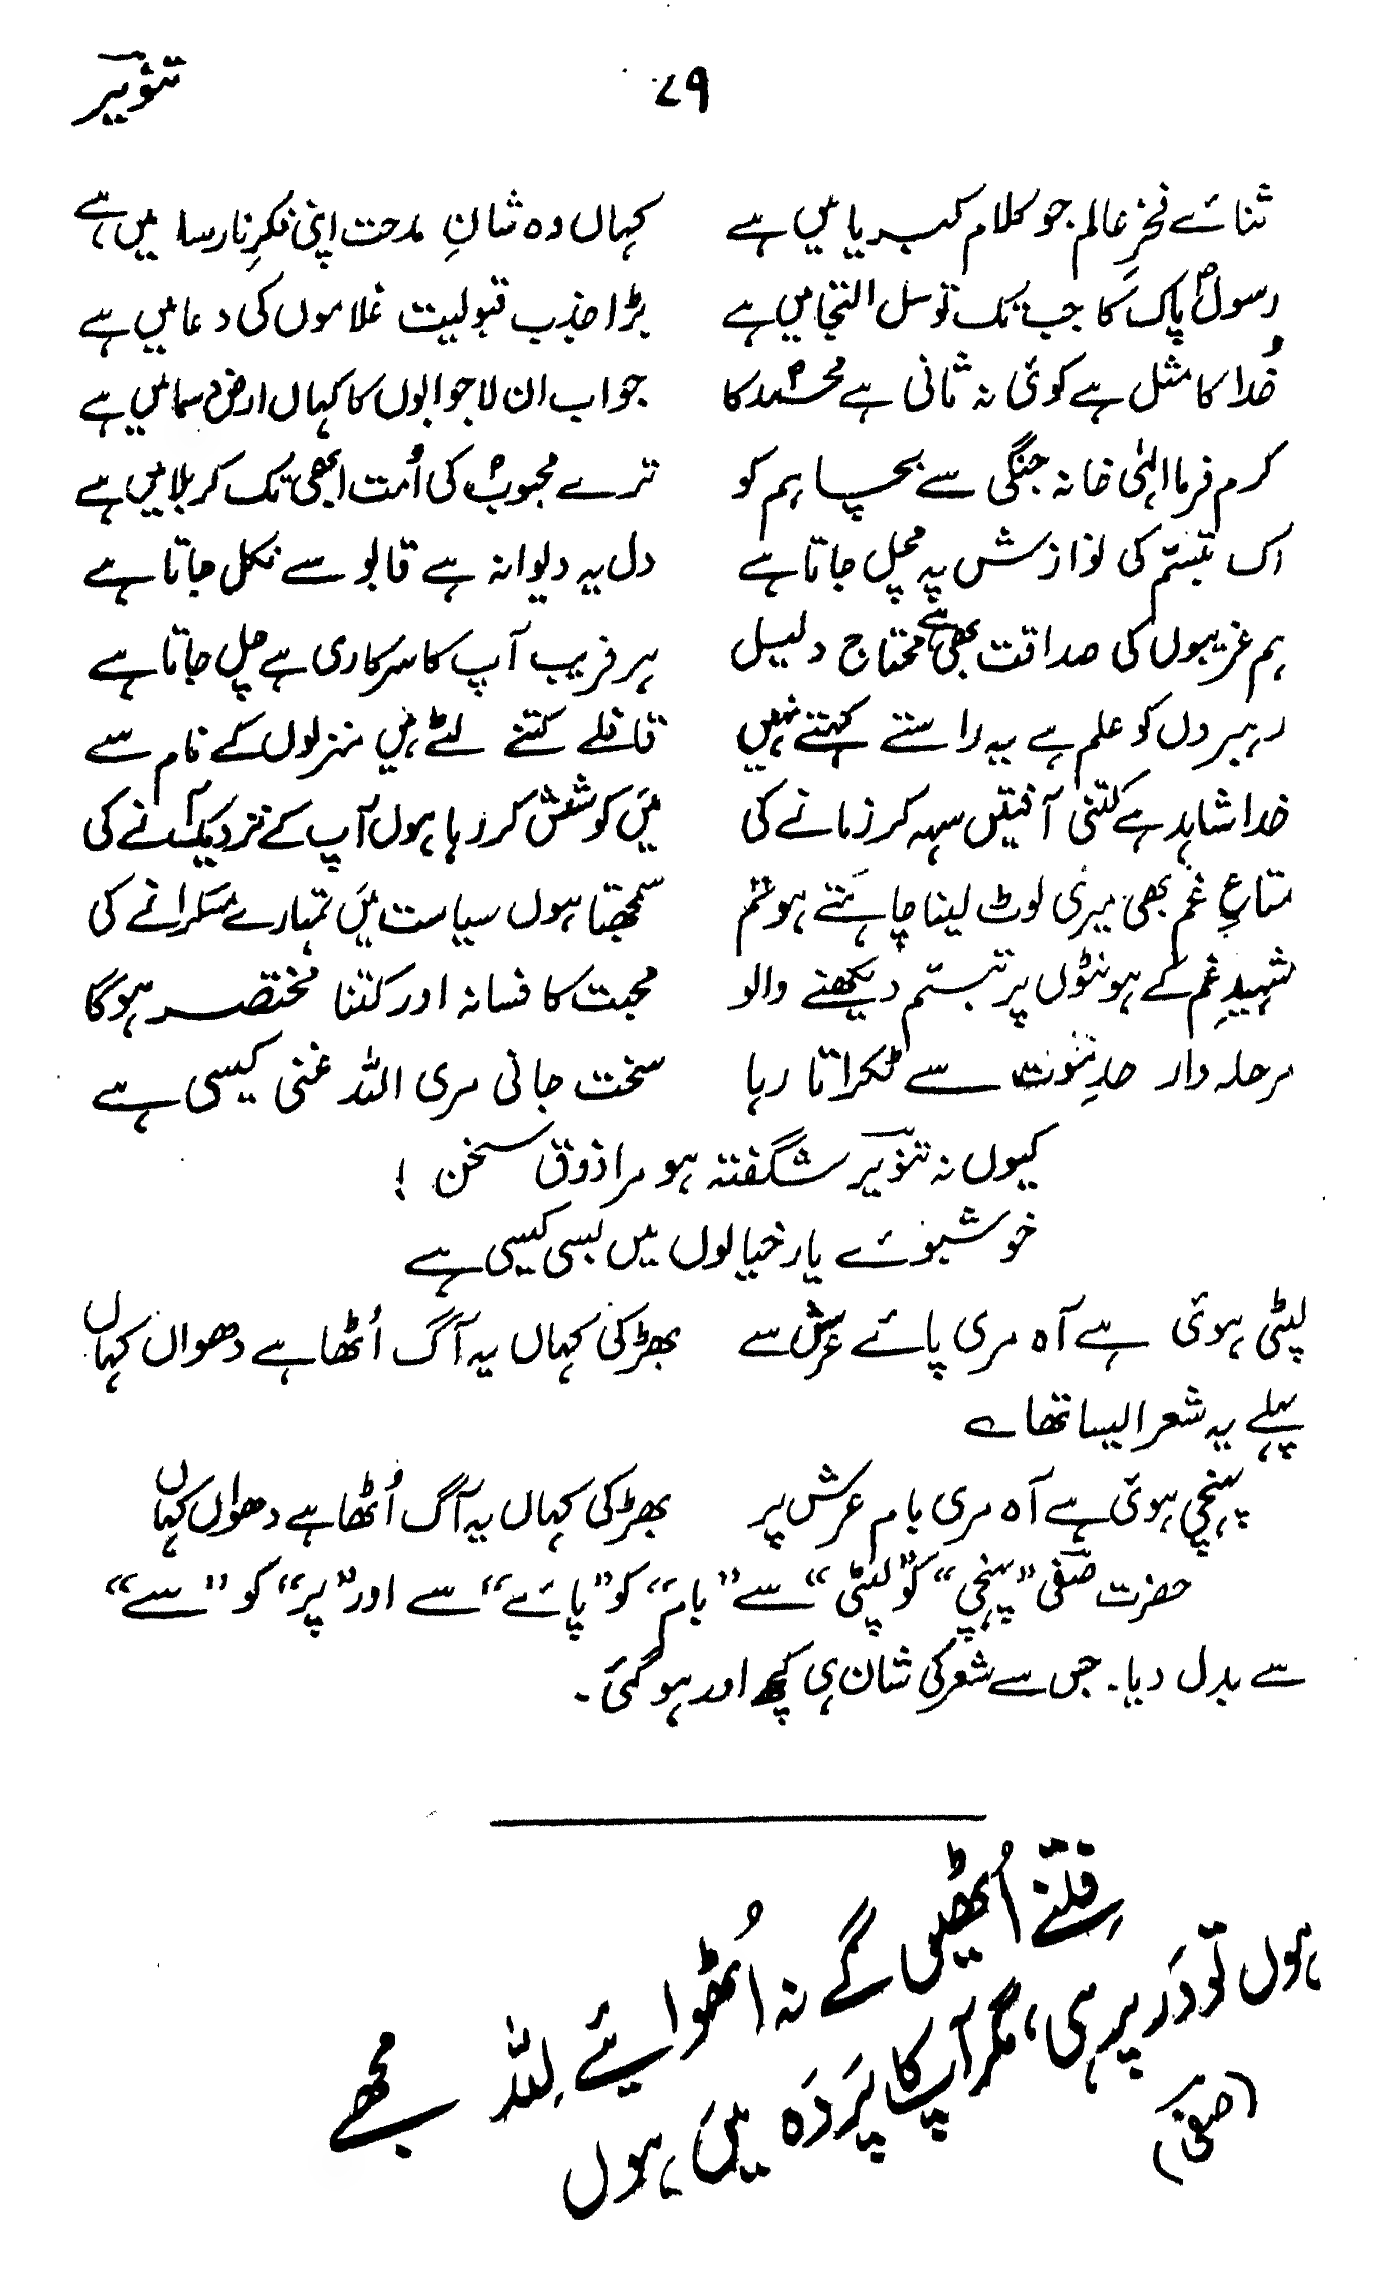 ۷۹ تنویر
ثنائے فخرِ عالم جو کلام کبریا میں ہے کہاں وہ شانِ مدحت اپنی فکرِ نارسا میں ہے
رسولؐ پاک کا جب تک توسل التجا میں ہے بڑا جذب قبولیت غلاموں کی دعا میں ہے
خُدا کا مثل ہے کوئی نہ ثانی ہے محمدؐ کا جواب ان لاجوابوں کا کہاں ارض و سما میں ہے
کرم فرما الٰہی خانہ جنگی سے بچا ہم کو ترے محبوبؐ کی اُمت ابھی تک کربلا میں ہے
اک تبسّم کی نوازش پہ مچل جاتا ہے دل یہ دیوانہ ہے قابو سے نکل جاتا ہے
ہم غریبوں کی صداقت بھی ہے محتاج دلیل ہر فریب آپ کا سرکاری ہے چل جاتا ہے
رہبروں کو علم ہے یہ راستے کہتے نہیں قافلے کتنے لٹے ہیں منزلوں کے نام سے
خدا شاہد ہے کتنی آفتیں سہہ کر زمانے کی میَں کوشش کر رہا ہوں آپ کے نزدیک آنے کی
متاعِ غم بھی میری لوٹ لینا چاہتے ہو تم سمجھتا ہوں سیاست میَں تمہارے مسکرانے کی
شہیدِ غم کے ہونٹوں پر تبسّم دیکھنے والو محبت کا فسانہ اور کتنا مختصر ہوگا
مرحلہ دار حدِ موت سے ٹکراتا رہا سخت جانی مری اللہ غنی کیسی ہے
کیوں نہ تنویر شگفتہ ہو مرا ذوق سخن !
خوشبوئے یار خیالوں میں بسی کیسی ہے
لپٹی ہوئی ہے آہ مری پائے عرش سے بھڑکی کہاں یہ آگ اُٹھا ہے دھواں کہاں
پہلے یہ شعر ایسا تھا ے
پہنچی ہوئی ہے آہ مری بام عرش پر بھڑکی کہاں یہ آگ اُٹھا ہے دھواں کہاں
حضرت صفی "پہنچی" کو "لپٹی" سے "بام" کو "پائے" سے اور "پر" کو "سے"
سے بدل دیا۔ جس سے شعر کی شان ہی کچھ اور ہو گئی۔
فِتنے اُٹھیں گے نہ اُٹھوائیے لِلّٰہ مجھے
ہوں تو دَر پر ہی، مگر آپ کا پَردَہ میَں ہوں
(صفی)